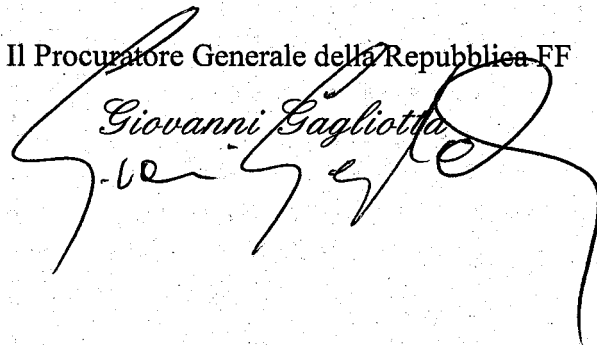 Il Procuratore Generale della Repubblica FF
Giovanni Gagliotta